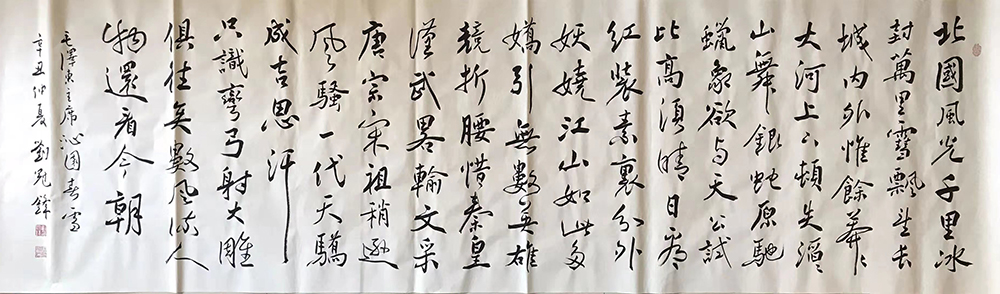 北國風光千里冰
封萬里雪飄望長
城内外惟餘莽々
大河上下頓失滔々
山舞銀蛇原馳
蠟象欲与天公試
比高須晴日看
紅裝素裹分外
妖嬈江山如此多
嬌引無數英雄
競折腰惜秦皇
漢武畧輸文采
唐宗宋祖稍遜
風騷一代天驕
成吉思汗
只識彎弓射大雕
俱往矣數風流人
物還看今朝
毛澤東主席沁園春雪
辛丑仲夏劉冠